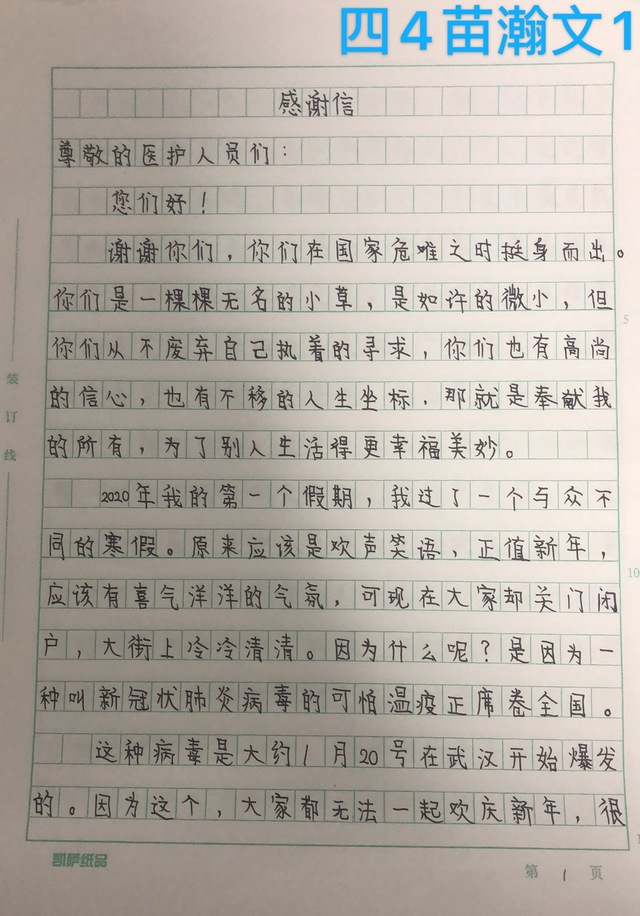 四4苗瀚文1
感谢信
尊敬的医护人员们：
您们好！
谢谢你们，你们在国家危难之时挺身而出。
你们是一棵棵无名的小草，是如许的微小，但
你们从不废弃自己执着的寻求，你们也有高尚
的信心，也有不移的人生坐标，那就是奉献我
的所有，为了别人生活得更幸福美妙。
2020年我的第一个假期，我过了一个与众不
同的寒假。原来应该是欢声笑语，正值新年，
应该有喜气洋洋的气氛，可现在大家却关门闭
户，大街上冷冷清清。因为什么呢？是因为一
种叫新冠状肺炎病毒的可怕温疫正席卷全国。
这种病毒是大约1月20号在武汉开始爆发
的。因为这个，大家都无法一起欢庆新年，很
装订线
5
10
凯萨纸品
第1页